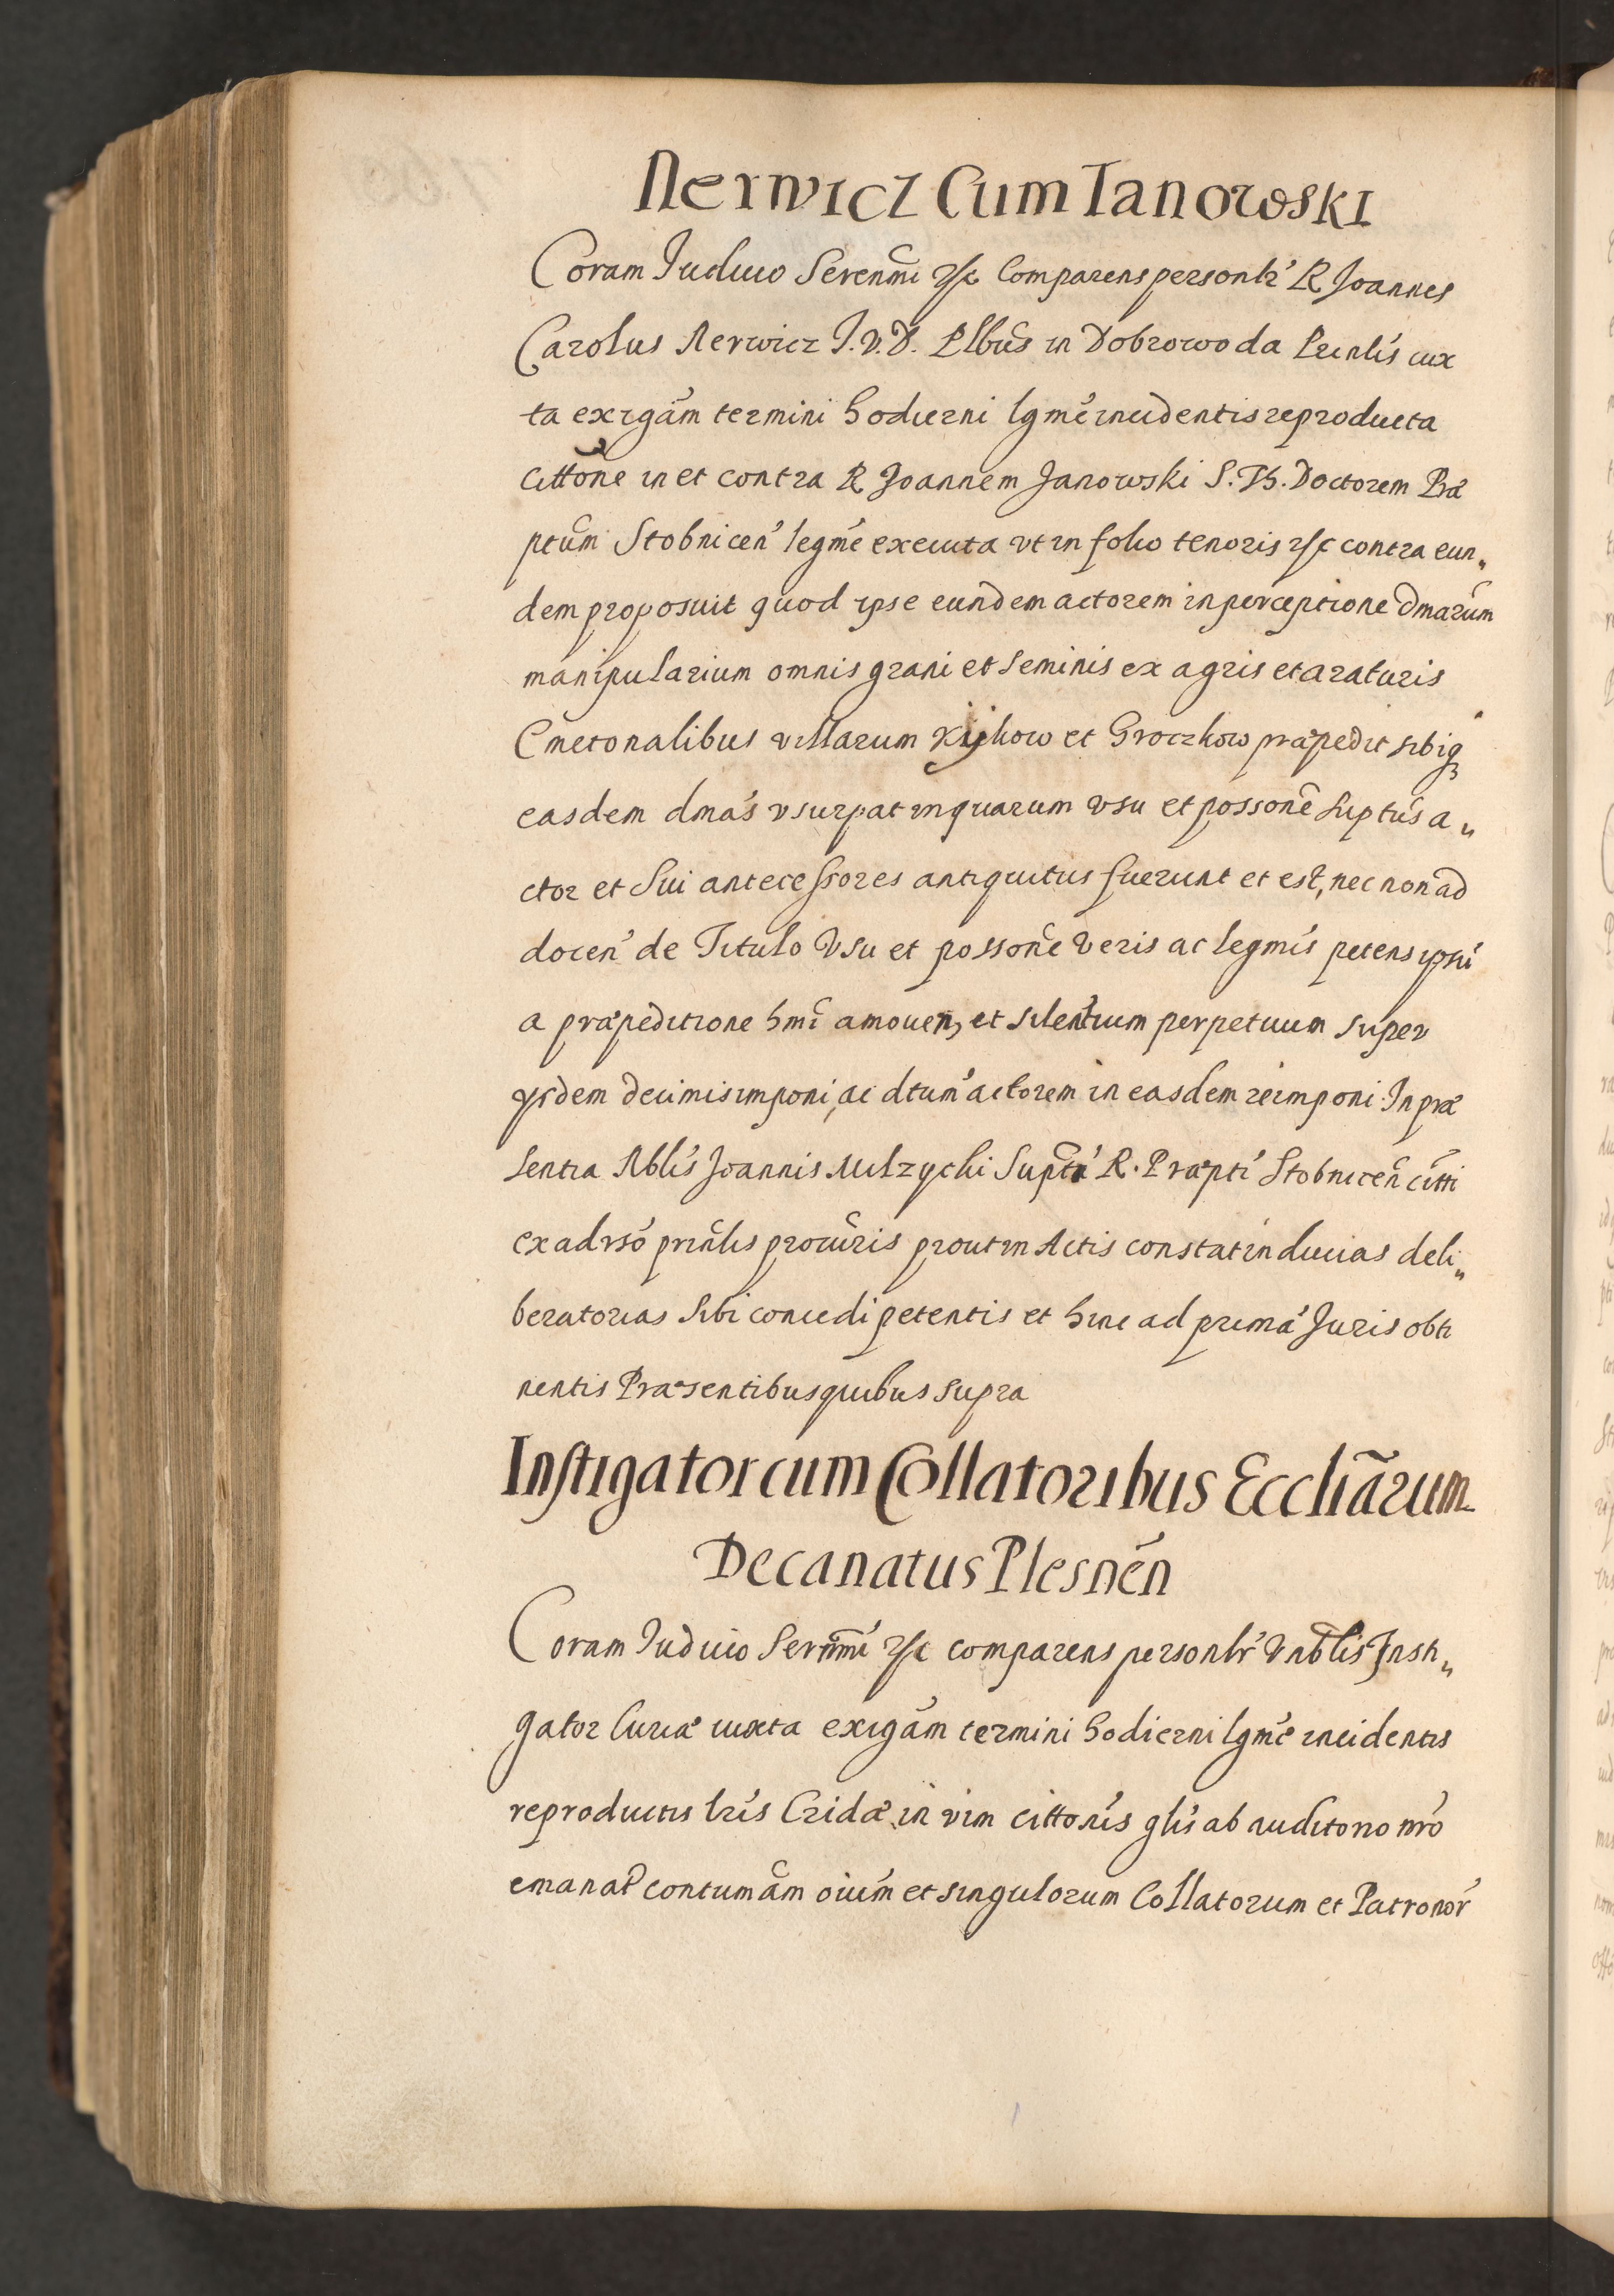 Nerwicz Cum Ianowski
Coram Iudicio Serenmi &c Comparens personlr R Joannes
Carolus Nerwicz J.V.D. Plbus in Dobrowoda Prinlis iux
ta exigām termini hodierni lgmē incidentis reproducta
cittōne in et contra R Joannem Janowski S. Th. Doctorem Præ
ptum Stobnicen legmē executa vt in folio tenoris &c contra eun„
dem proposuit quod ipse eundem actorem in perceptione dmarum
manipularium omnis grani et seminis ex agris et araturis
Cmetonalibus villarum Kijkow et Groczkow præpedit sibiq
easdem dmas vsurpat in quarum vsu et possonē suptus a„
ctor et sui antecessores antiquitus fuerunt et est, nec non ad
docen de Titulo Vsu et possonē veris ac legmis petens ipsū
a præpeditione hmi amouen, et silentium perpetuum super
ijsdem decimis imponi, ac dtum actorem in easdem reimponi. In præ
sentia Nblis Joannis Milzycki Supti R. Præpti Stobnicen citti
ex adrso prinlis procuris prout in Actis constat inducias deli„
beratorias sibi concedi petentis et hinc ad primā Juris obti
nentis Præsentibus quibus supra
Instigator cum Collatoribus Eccliārum
Decanatus Plesnēn
Coram Iudicio Sernmi &c comparens personlr Vnblis Insti„
gator Curiæ iuxta exigām termini hodierni lgmē incidentis
reproductis lris Cridæ in vim cittonis glis ab auditorio nro
emanat contumām oium et singulorum Collatorum et Patronor